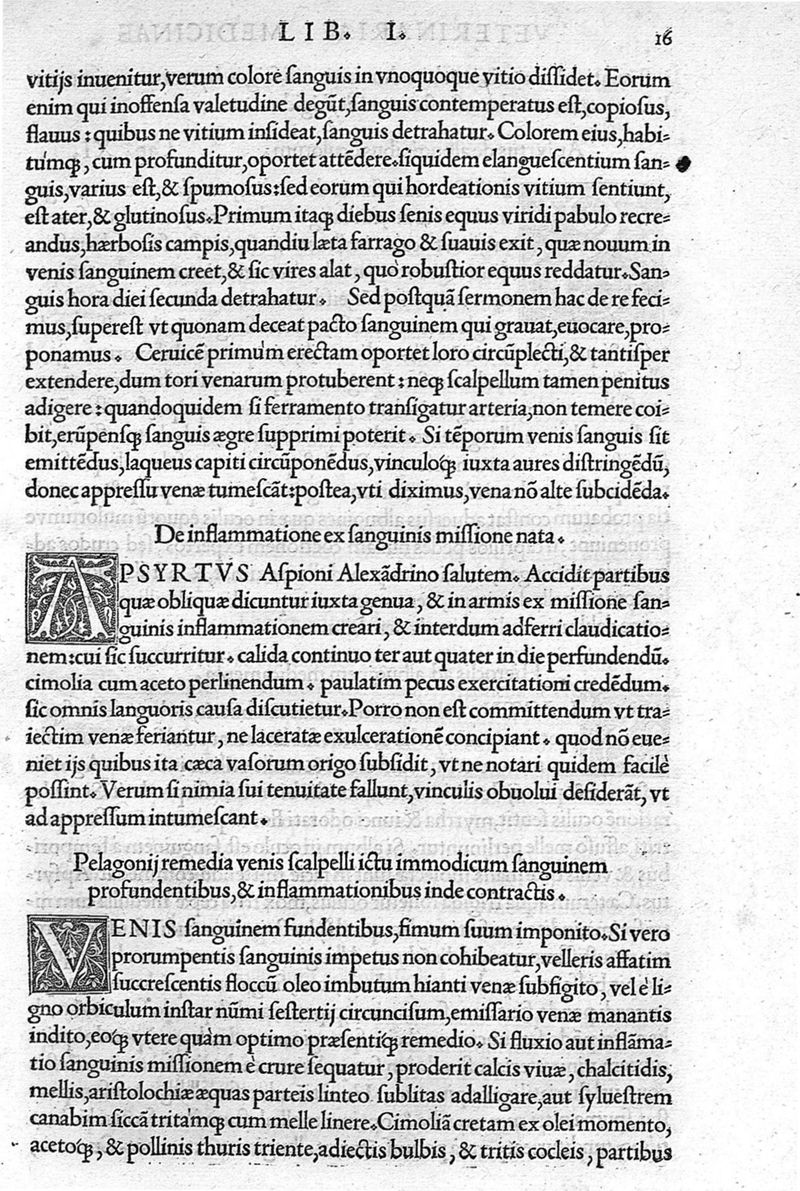 LIB. I. 16
vitijs inuenitur, verum colore ſanguis in vnoquoque vitio diſſidet. Eorum
enim qui inoffenſa valetudine degūt, ſanguis contemperatus eſt, copioſus,
flauus : quibus ne vitium inſideat, ſanguis detrahatur. Colorem eius, habi=
tumꝗ, cum profunditur, oportet attēdere. ſiquidem elangueſcentium ſan=
guis, varius eſt, & ſpumoſus: ſed eorum qui hordeationis vitium ſentiunt,
eſt ater, & glutinoſus. Primum itaꝗ diebus ſenis equus viridi pabulo recre=
andus, hærboſis campis, quandiu læta farrago & ſuauis exit, quæ nouum in
venis ſanguinem creet, & ſic vires alat, quò robuſtior equus reddatur. San=
guis hora diei ſecunda detrahatur. Sed poſtquā ſermonem hac de re feci=
mus, ſupereſt vt quonam deceat pacto ſanguinem qui grauat, euocare, pro=
ponamus. Ceruicē primum erectam oportet loro circūplecti, & tantiſper
extendere, dum tori venarum protuberent : neꝗ ſcalpellum tamen penitus
adigere : quandoquidem ſi ferramento tranſigatur arteria, non temere coi=
bit, erūpenſꝗ ſanguis ægre ſupprimi poterit. Si tēporum venis ſanguis ſit
emittēdus, laqueus capiti circūponēdus, vinculoꝗ́ iuxta aures diſtringēdū,
donec appreſſu venæ tumeſcāt: poſtea, vti diximus, vena nō alte ſubcidēda.
De inflammatione ex ſanguinis miſſione nata.
APSYRTVS Aſpioni Alexādrino ſalutem. Accidit partibus
quæ obliquæ dicuntur iuxta genua, & in armis ex miſſione ſan=
guinis inflammationem creari, & interdum adferri claudicatio=
nem: cui ſic ſuccurritur. calida continuo ter aut quater in die perfundendū.
cimolia cum aceto perlinendum. paulatim pecus exercitationi credēdum.
ſic omnis languoris cauſa diſcutietur. Porro non eſt committendum vt tra=
iectim venæ feriantur, ne laceratæ exulcerationē concipiant. quod nō eue=
niet ijs quibus ita cæca vaſorum origo ſubſidit, vt ne notari quidem facilè
poſſint. Verum ſi nimia ſui tenuitate fallunt, vinculis obuolui deſiderāt, vt
ad appreſſum intumeſcant.
Pelagonij remedia venis ſcalpelli ictu immodicum ſanguinem
profundentibus, & inflammationibus inde contractis.
VENIS ſanguinem fundentibus, fimum ſuum imponito. Si vero
prorumpentis ſanguinis impetus non cohibeatur, velleris affatim
ſuccreſcentis floccū oleo imbutum hianti venæ ſubfigito, vel è li=
gno orbiculum inſtar nūmi ſeſtertij circunciſum, emiſſario venæ manantis
indito, eoꝗ́ vtere quàm optimo præſentiꝗ́ remedio. Si fluxio aut inflāma=
tio ſanguinis miſſionem è crure ſequatur, proderit calcis viuæ, chalcitidis,
mellis, ariſtolochiæ æquas parteis linteo ſublitas adalligare, aut ſylueſtrem
canabim ſiccā tritāmꝗ cum melle linere. Cimoliā cretam ex olei momento,
acetoꝗ́, & pollinis thuris triente, adiectis bulbis, & tritis cocleis, partibus